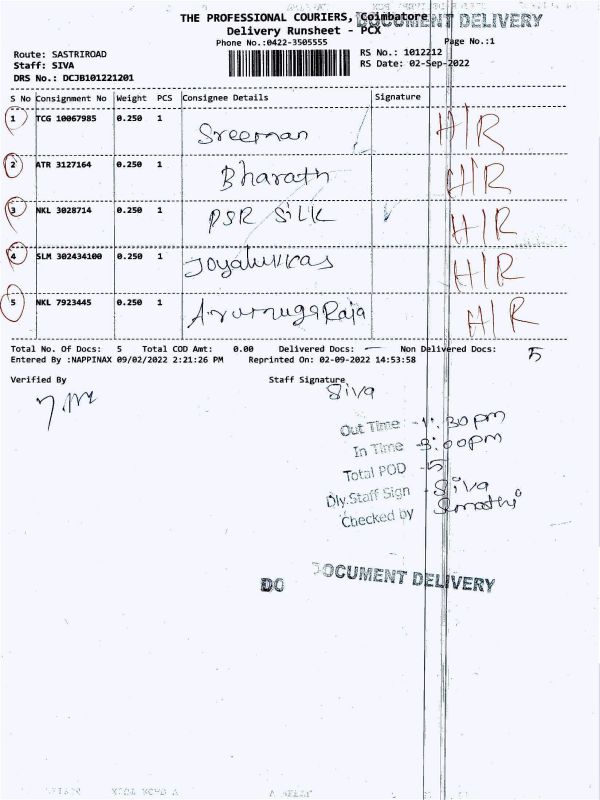 THE PROFESSIONAL COURIERS, Coimbatore
DOCUMENT DELIVERY
Delivery Runsheet - PCX
Phone No.:0422-3505555
Page No.:1
Route: SASTRIROAD
RS No.: 1012212
Staff: SIVA
RS Date: 02-Sep-2022
DRS No.: DCJB101221201
S No Consignment No Weight PCS Consignee Details Signature
1 TCG 10067985 0.250 1 Sreeman H/R
2 ATR 3127164 0.250 1 Bharath H/R
3 NKL 3028714 0.250 1 PSR SILK H/R
4 SLM 302434100 0.250 1 Joyalukkas H/R
5 NKL 7923445 0.250 1 ArumugaRaja H/R
Total No. Of Docs: 5 Total COD Amt: 0.00 Delivered Docs: — Non Delivered Docs: 5
Entered By :NAPPINAX 09/02/2022 2:21:26 PM Reprinted On: 02-09-2022 14:53:58
Verified By Staff Signature
Siva
Out Time - :30pm
In Time - :00pm
Total POD - 5
Dly.Staff Sign - Siva
Checked by
DO
DOCUMENT DELIVERY